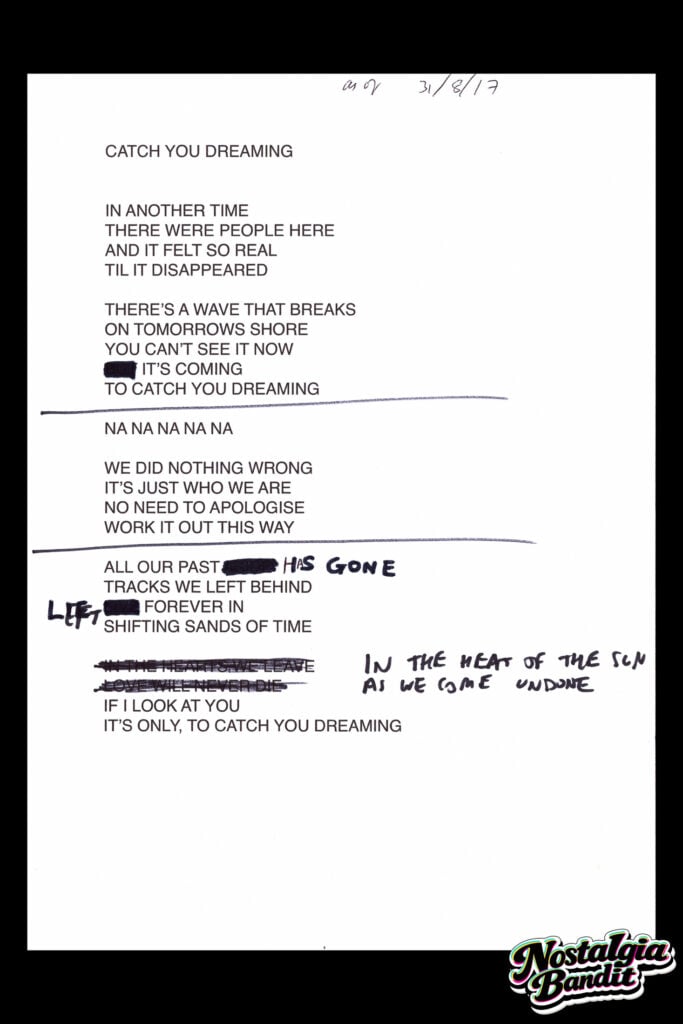 as of 31/8/17
CATCH YOU DREAMING
IN ANOTHER TIME
THERE WERE PEOPLE HERE
AND IT FELT SO REAL
TIL IT DISAPPEARED
THERE'S A WAVE THAT BREAKS
ON TOMORROWS SHORE
YOU CAN'T SEE IT NOW
IT'S COMING
TO CATCH YOU DREAMING
NA NA NA NA NA
WE DID NOTHING WRONG
IT'S JUST WHO WE ARE
NO NEED TO APOLOGISE
WORK IT OUT THIS WAY
ALL OUR PAST HAS GONE
TRACKS WE LEFT BEHIND
LEFT FOREVER IN
SHIFTING SANDS OF TIME
IN THE HEARTS WE LEAVE IN THE HEAT OF THE SUN
LOVE WILL NEVER DIE AS WE COME UNDONE
IF I LOOK AT YOU
IT'S ONLY, TO CATCH YOU DREAMING
Nostalgia
Bandit